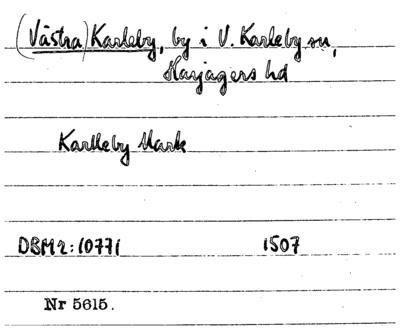 (Västra) Karleby, by i V. Karleby sn,
Skrjagers hd
Karlleby Mark
DBM 2:10771 1507
Nr 5615.